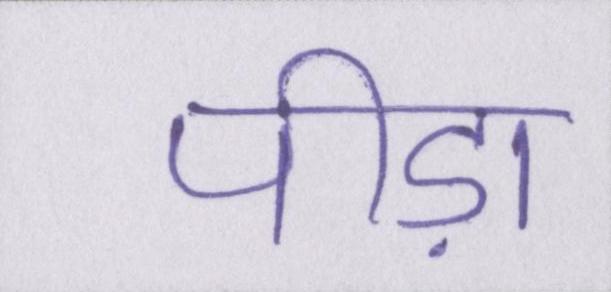 पीड़ा